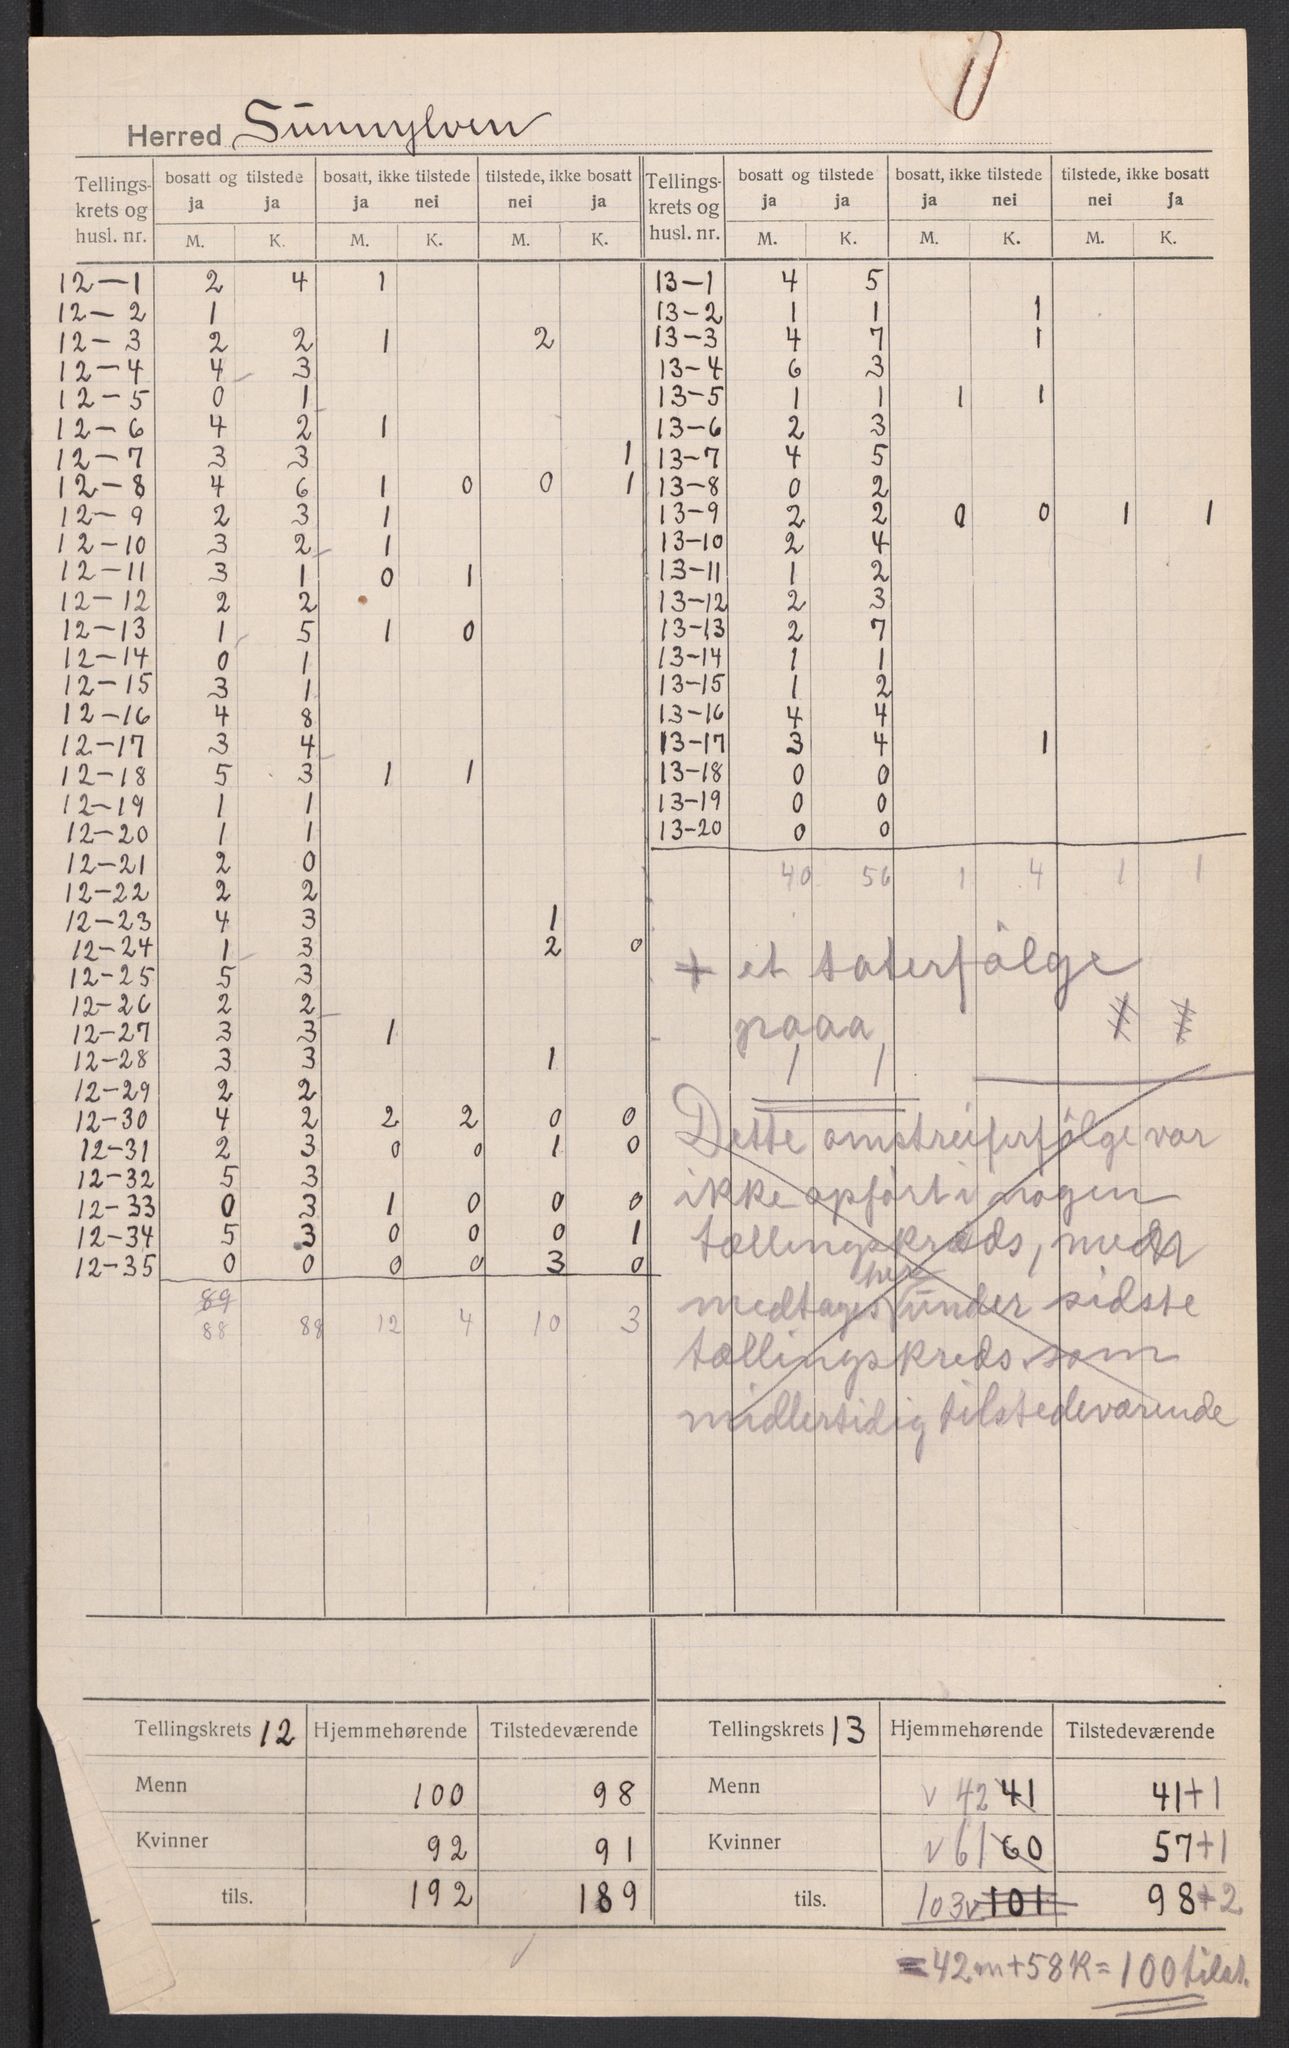 Herred Sunnylven
Tellingskrets og husl. nr. | bosatt og tilstede | bosatt, ikke tilstede | tilstede, ikke bosatt | Tellingskrets og husl. nr. | bosatt og tilstede | bosatt, ikke tilstede | tilstede, ikke bosatt
ja ja | ja nei | nei ja | ja ja | ja nei | nei ja
M. K. | M. K. | M. K. | M. K. | M. K. | M. K.
12-1 2 4 1
12-2 1
12-3 2 2 1 2
12-4 4 3
12-5 0 1
12-6 4 2 1
12-7 3 3 1
12-8 4 6 1 0 0 1
12-9 2 3 1
12-10 3 2 1
12-11 3 1 0 1
12-12 2 2
12-13 1 5 1 0
12-14 0 1
12-15 3 1
12-16 4 8
12-17 3 4
12-18 5 3 1 1
12-19 1 1
12-20 1 1
12-21 2 0
12-22 2 2
12-23 4 3 1
12-24 1 3 2 0
12-25 5 3
12-26 2 2
12-27 3 3 1
12-28 3 3 1
12-29 2 2
12-30 4 2 2 2 0 0
12-31 2 3 0 0 1 0
12-32 5 3
12-33 0 3 1 0 0 0
12-34 5 3 0 0 0 1
12-35 0 0 0 0 3 0
89
88 88 12 4 10 3
13-1 4 5
13-2 1 1 1
13-3 4 7 1
13-4 6 3
13-5 1 1 1 1
13-6 2 3
13-7 4 5
13-8 0 2
13-9 2 2 0 0 1 1
13-10 2 4
13-11 1 2
13-12 2 3
13-13 2 7
13-14 1 1
13-15 1 2
13-16 4 4
13-17 3 4 1
13-18 0 0
13-19 0 0
13-20 0 0
40 56 1 4 1 1
+ et taterfølge
paaa
1 1
Dette omstreiferfølge var
ikke opført i nogen
tællingskreds, men
medtages her under sidste
tællingskreds som
midlertidig tilstedeværende
Tellingskrets 12 Hjemmehørende Tilstedeværende
Menn 100 98
Kvinner 92 91
tils. 192 189
Tellingskrets 13 Hjemmehørende Tilstedeværende
Menn v 42 41 41+1
Kvinner v 61 60 57+1
tils. 103 v 101 98+2
= 42m+58K = 100 tilst.